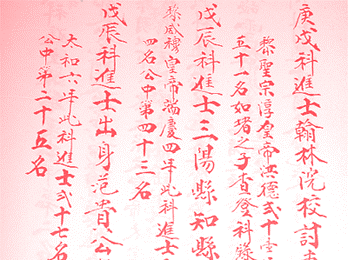 庚戌科進士翰林院校討
黎聖宗淳皇帝洪德弍十壹
五十一名如堵之子查登科錄
戊辰科進士三陽縣知縣
黎威穆皇帝端慶四年此科進士
四名公中第四十三名
戊辰科進士出身范貴公
太和六年此科進士弍十七名
公中第二十五名